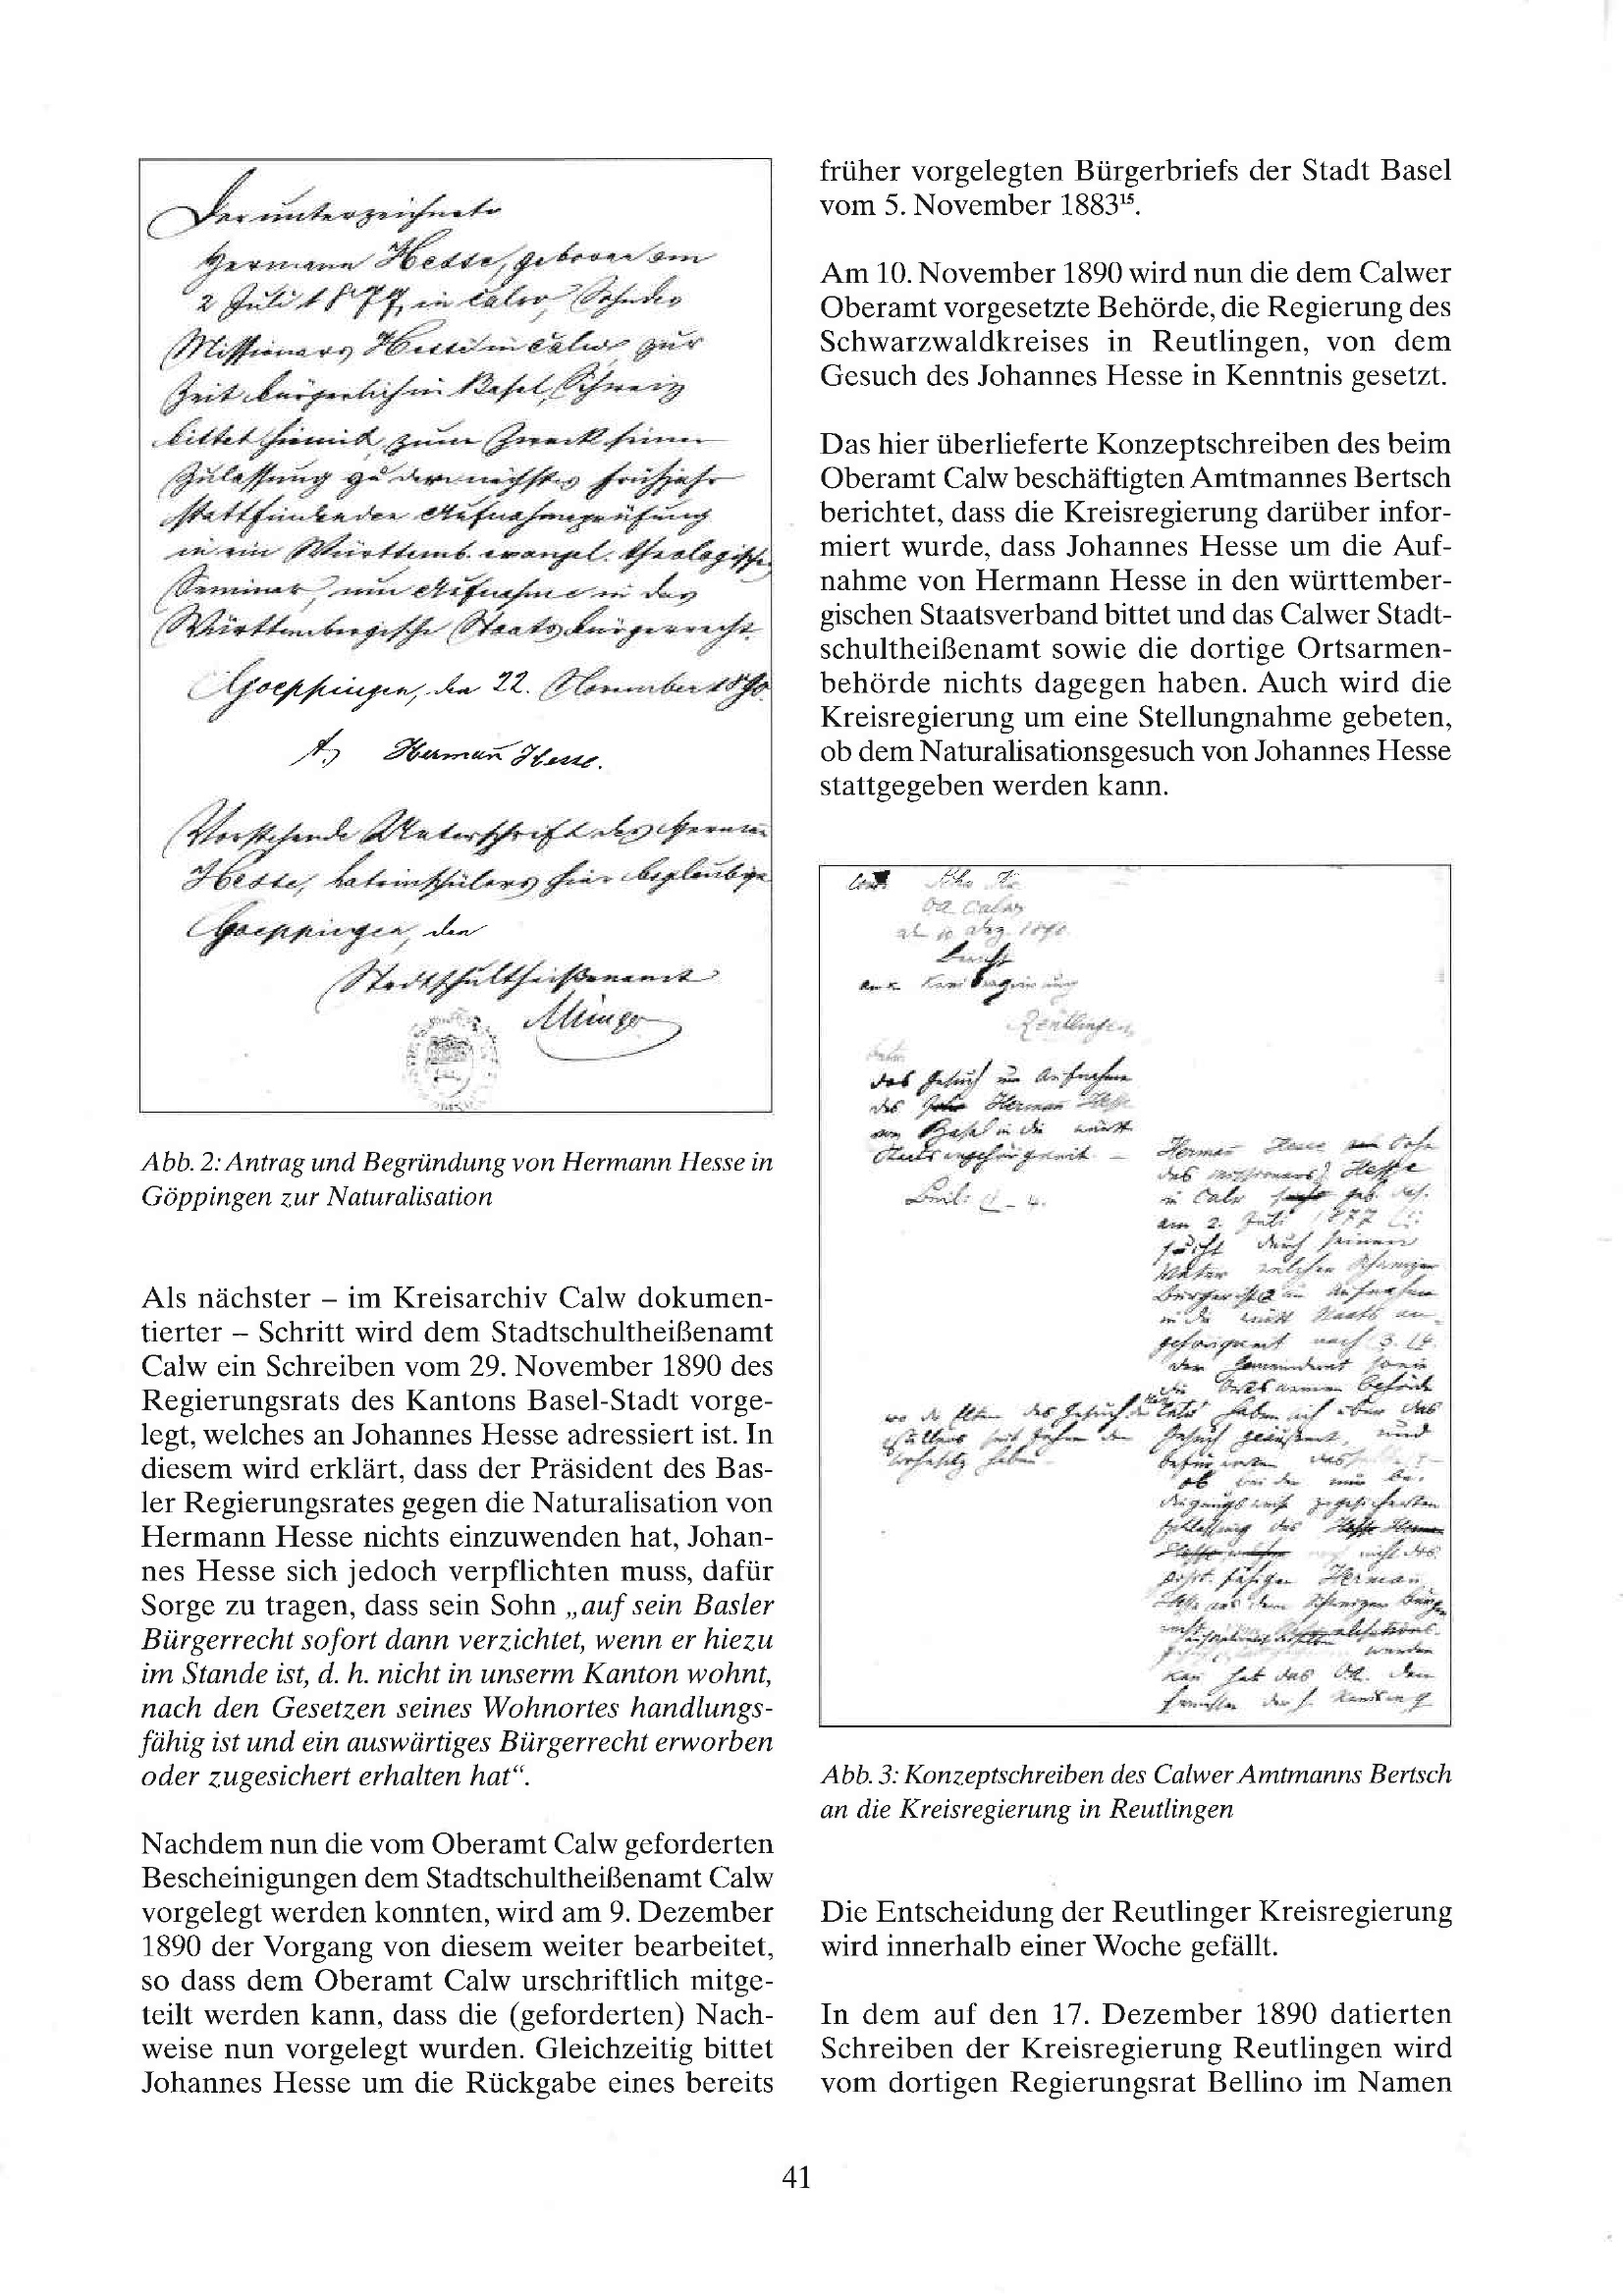 Der unterzeichnete
Hermann Hesse, geboren am
2 Juli 1877, in Calw, Sohn des
Missionars Hesse in Calw, zur
Zeit bürgerlich in Basel, Schweiz
bittet hiemit, zum Zweck seiner
Zulassung zu der nächstes Frühjahr
stattfindenden Aufnahmeprüfung
in ein Württemb. evangel. theologisches
Seminar, um Aufnahme in das
Württembergische Staatsbürgerrecht.
Goeppingen, den 22. November 1890.
Hermann Hesse.
Vorstehende Unterschrift des Hermann
Hesse, Lateinschülers hier beglaubigt
Goeppingen, den
Stadtschultheißenamt
Abb. 2: Antrag und Begründung von Hermann Hesse in
Göppingen zur Naturalisation
Als nächster – im Kreisarchiv Calw dokumen-
tierter – Schritt wird dem Stadtschultheißenamt
Calw ein Schreiben vom 29. November 1890 des
Regierungsrats des Kantons Basel-Stadt vorge-
legt, welches an Johannes Hesse adressiert ist. In
diesem wird erklärt, dass der Präsident des Bas-
ler Regierungsrates gegen die Naturalisation von
Hermann Hesse nichts einzuwenden hat, Johan-
nes Hesse sich jedoch verpflichten muss, dafür
Sorge zu tragen, dass sein Sohn „auf sein Basler
Bürgerrecht sofort dann verzichtet, wenn er hiezu
im Stande ist, d. h. nicht in unserm Kanton wohnt,
nach den Gesetzen seines Wohnortes handlungs-
fähig ist und ein auswärtiges Bürgerrecht erworben
oder zugesichert erhalten hat“.
Nachdem nun die vom Oberamt Calw geforderten
Bescheinigungen dem Stadtschultheißenamt Calw
vorgelegt werden konnten, wird am 9. Dezember
1890 der Vorgang von diesem weiter bearbeitet,
so dass dem Oberamt Calw urschriftlich mitge-
teilt werden kann, dass die (geforderten) Nach-
weise nun vorgelegt wurden. Gleichzeitig bittet
Johannes Hesse um die Rückgabe eines bereits
früher vorgelegten Bürgerbriefs der Stadt Basel
vom 5. November 1883¹⁵.
Am 10. November 1890 wird nun die dem Calwer
Oberamt vorgesetzte Behörde, die Regierung des
Schwarzwaldkreises in Reutlingen, von dem
Gesuch des Johannes Hesse in Kenntnis gesetzt.
Das hier überlieferte Konzeptschreiben des beim
Oberamt Calw beschäftigten Amtmannes Bertsch
berichtet, dass die Kreisregierung darüber infor-
miert wurde, dass Johannes Hesse um die Auf-
nahme von Hermann Hesse in den württember-
gischen Staatsverband bittet und das Calwer Stadt-
schultheißenamt sowie die dortige Ortsarmen-
behörde nichts dagegen haben. Auch wird die
Kreisregierung um eine Stellungnahme gebeten,
ob dem Naturalisationsgesuch von Johannes Hesse
stattgegeben werden kann.
OA Calw
10 Dez. 1890.
Bericht
Kreisregierung
Reutlingen
das Gesuch um Aufnahme
des Herman Hesse
von Basel in die württ.
Staatsangehörigkeit. –
Beil: 1 – 4.
Herman Hesse Sohn
des Missionars Hesse
in Calw geb. das.
am 2. Juli 1877
sucht durch seinen
Vater welcher Schweizer
Bürger ist um Aufnahme
in die württ. Staatsan-
gehörigkeit nach
Der Gemeinderat sowie
die Ortsarmenbehörde
Calw haben sich über das
Gesuch geäußert und
Abb. 3: Konzeptschreiben des Calwer Amtmanns Bertsch
an die Kreisregierung in Reutlingen
Die Entscheidung der Reutlinger Kreisregierung
wird innerhalb einer Woche gefällt.
In dem auf den 17. Dezember 1890 datierten
Schreiben der Kreisregierung Reutlingen wird
vom dortigen Regierungsrat Bellino im Namen
41